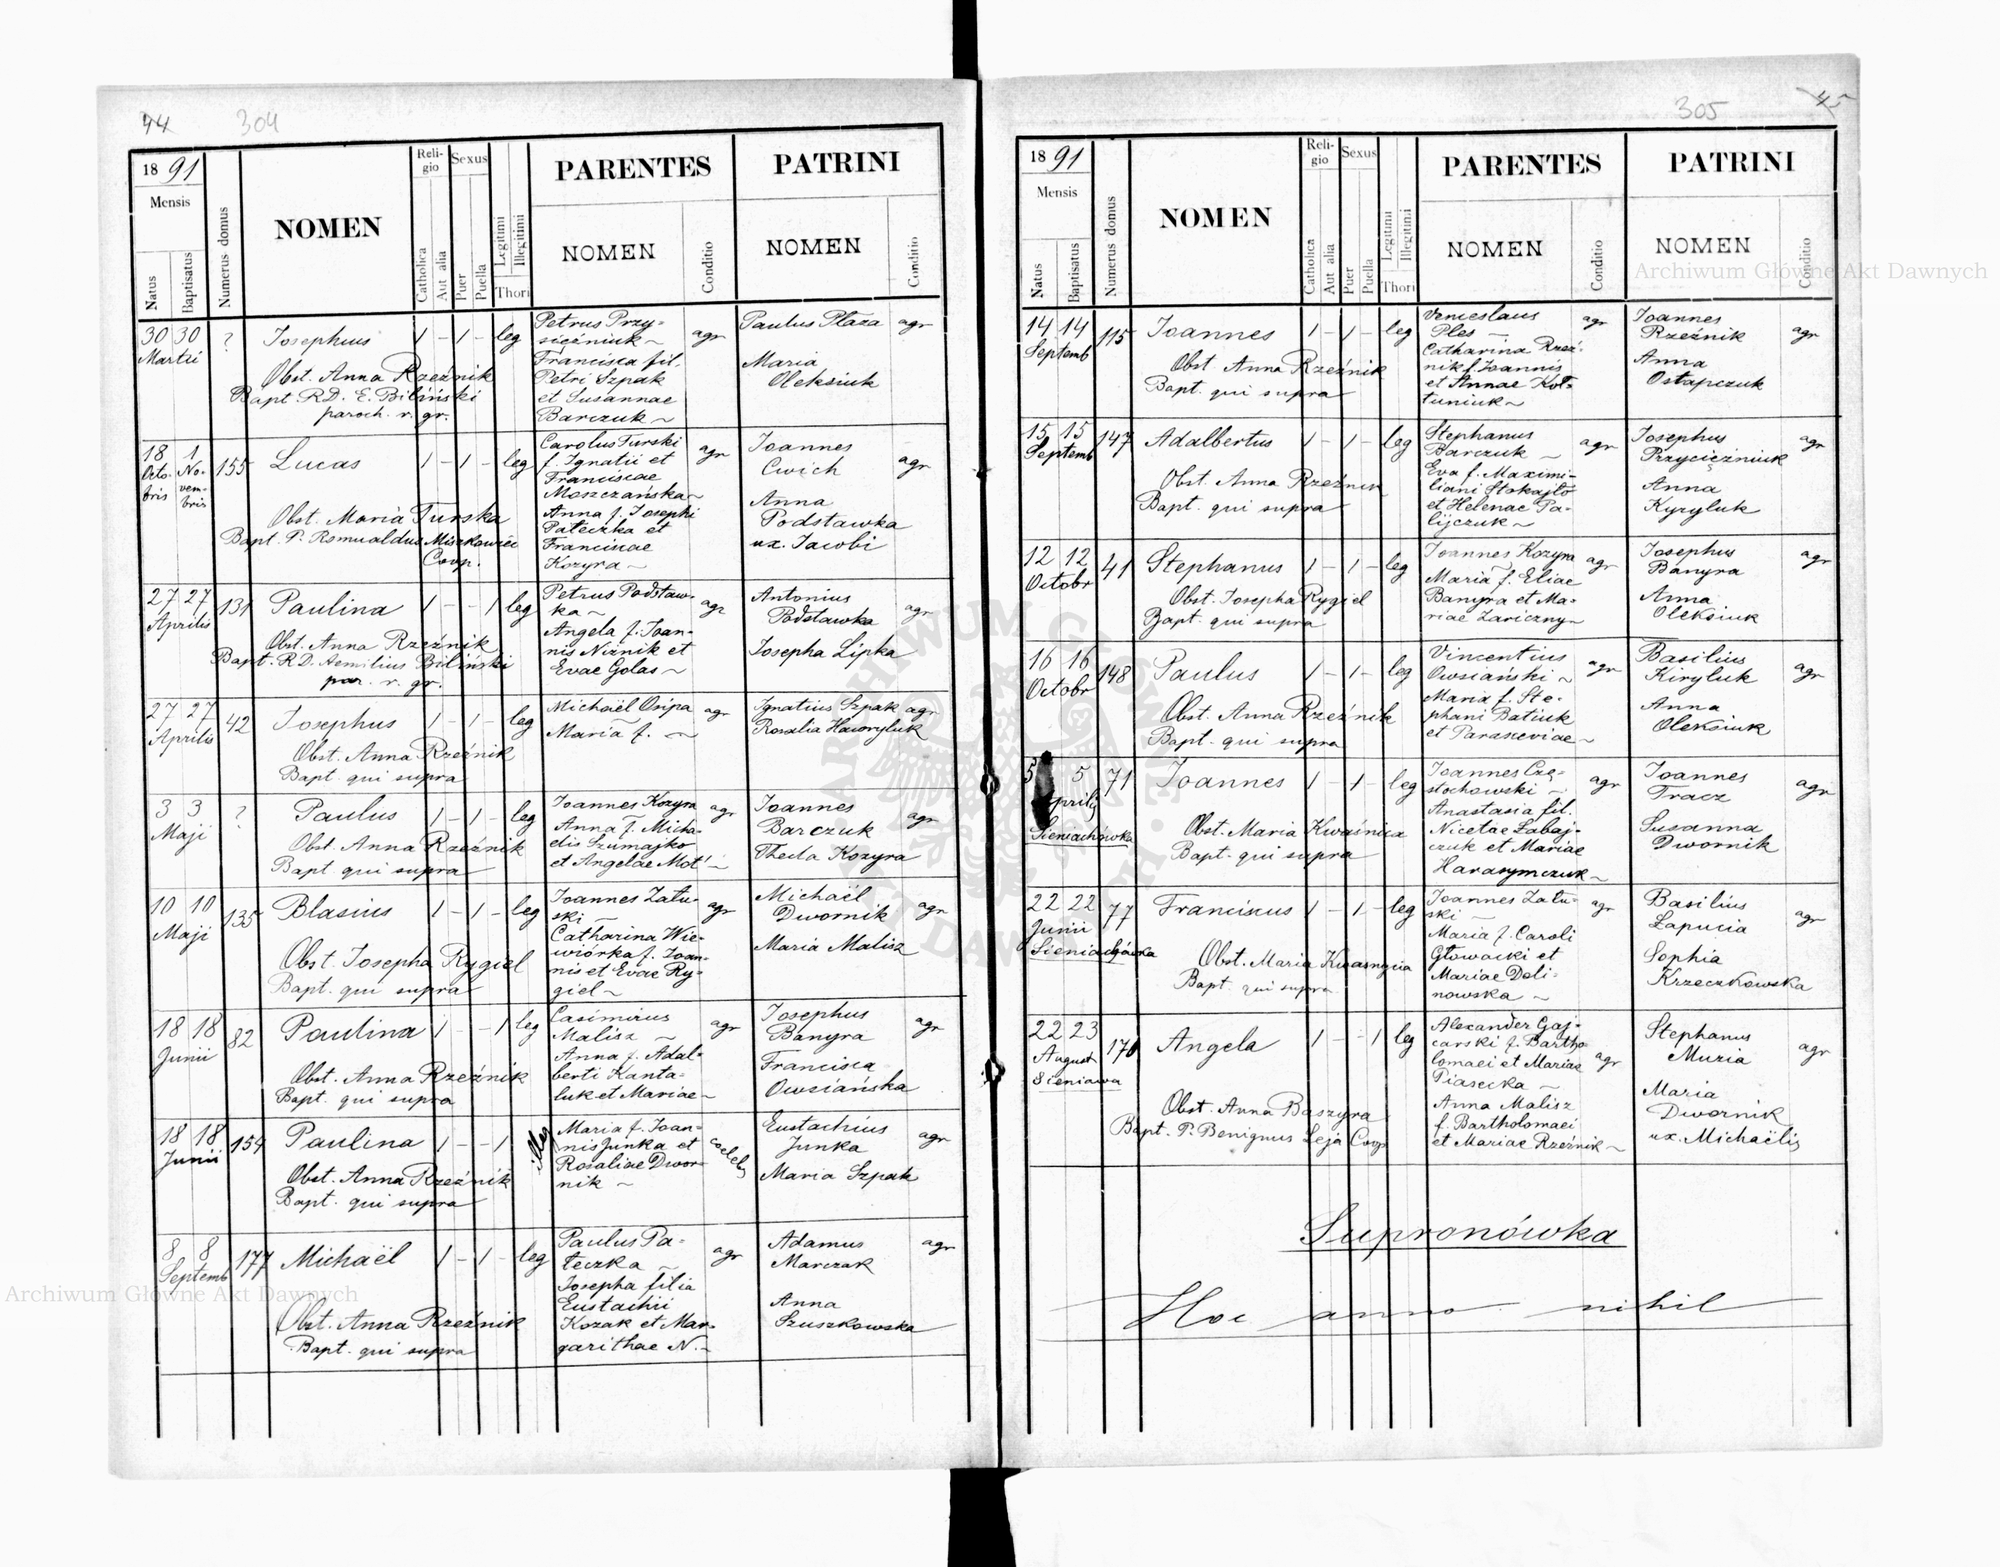 44 304
18 91
Mensis
Natus
Baptisatus
Numerus domus
NOMEN
Reli-
gio
Catholica
Aut alia
Sexus
Puer
Puella
Legitimi
Illegitimi
Thori
PARENTES
NOMEN
Conditio
PATRINI
NOMEN
Conditio
30 30 ? Josephus 1 - 1 - leg
Martii
Obst. Anna Rzeźnik
Bapt. R.D. E. Biliński
paroch. r. gr.
Petrus Przy-
siężniuk ~ agr
Francisca fil.
Petri Szpak
et Susannae
Barczuk ~
Paulus Płaza agr
Maria
Oleksiuk
18 1 155 Lucas 1 - 1 - leg
Octo- No-
bris vem-
bris
Obst. Maria Turska
Bapt. P. Romualdus Miszkowicz
Coop.
Carolus Turski agr
f. Ignatii et
Franciscae
Moszczańska ~
Anna f. Josephi
Pateczka et
Franciscae
Kozyra ~
Joannes
Cwich agr
Anna
Podstawka
ux. Jacobi
27 27 131 Paulina 1 - - 1 leg
Aprilis
Obst. Anna Rzeźnik
Bapt. R.D. Aemilius Biliński
par. r. gr.
Petrus Podstaw-
ka ~ agr
Angela f. Joan-
nis Niżnik et
Evae Golas ~
Antonius
Podstawka agr
Josepha Lipka
27 27 42 Josephus 1 - 1 - leg
Aprilis
Obst. Anna Rzeźnik
Bapt. qui supra
Michaël Osipa agr
Maria f. ~
Ignatius Szpak agr
Rosalia Haworyluk
3 3 ? Paulus 1 - 1 - leg
Maji
Obst. Anna Rzeźnik
Bapt. qui supra
Joannes Kozyra agr
Anna f. Micha-
elis Szumajko
et Angelae Mot' ~
Joannes
Barczuk agr
Thecla Kozyra
10 10 135 Blasius 1 - 1 - leg
Maji
Obst. Josepha Rygiel
Bapt. qui supra
Joannes Zału-
ski ~ agr
Catharina Wie-
wiórka f. Joan-
nis et Evae Ry-
giel ~
Michaël
Dwornik agr
Maria Malisz
18 18 82 Paulina 1 - - 1 leg
Junii
Obst. Anna Rzeźnik
Bapt. qui supra
Casimirus
Malisz ~ agr
Anna f. Adal-
berti Kanta-
luk et Mariae ~
Josephus
Banyra agr
Francisca
Owsiańska
18 18 154 Paulina 1 - - 1 illeg
Junii
Obst. Anna Rzeźnik
Bapt. qui supra
Maria f. Joan-
nis Junka et coelebs
Rosaliae Dwor-
nik ~
Eustachius
Junka agr
Maria Szpak
8 8 177 Michaël 1 - 1 - leg
Septemb
Obst. Anna Rzeźnik
Bapt. qui supra
Paulus Pa-
teczka ~ agr
Josepha filia
Eustachii
Kozak et Mar-
garithae N. ~
Adamus
Marczak agr
Anna
Szuszkowska
305 45
18 91
Mensis
Natus
Baptisatus
Numerus domus
NOMEN
Reli-
gio
Catholica
Aut alia
Sexus
Puer
Puella
Legitimi
Illegitimi
Thori
PARENTES
NOMEN
Conditio
PATRINI
NOMEN
Conditio
14 14 115 Joannes 1 - 1 - leg
Septemb
Obst. Anna Rzeźnik
Bapt. qui supra
Venceslaus agr
Ples ~
Catharina Rzeź-
nik f. Joannis
et Annae Kot-
tuniuk ~
Joannes
Rzeźnik agr
Anna
Ostapczuk
15 15 147 Adalbertus 1 - 1 - leg
Septemb
Obst. Anna Rzeźnik
Bapt. qui supra
Stephanus
Barczuk ~ agr
Eva f. Maximi-
liani Stokajło
et Helenae Pa-
lijczuk ~
Josephus agr
Przyciężniuk
Anna
Kyryluk
12 12 41 Stephanus 1 - 1 - leg
Octobr
Obst. Josepha Rygiel
Bapt. qui supra
Joannes Kozyra agr
Maria f. Eliae
Banyra et Ma-
riae Zariczny ~
Josephus
Banyra agr
Anna
Oleksiuk
16 16 148 Paulus 1 - 1 - leg
Octobr
Obst. Anna Rzeźnik
Bapt. qui supra
Vincentius
Owsiański ~ agr
Maria f. Ste-
phani Batiuk
et Parasceviae ~
Basilius
Kiryluk agr
Anna
Oleksiuk
5 5 71 Joannes 1 - 1 - leg
Aprilis
Sieniachówka
Obst. Maria Kwaśnica
Bapt. qui supra
Joannes Czę-
stochowski ~ agr
Anastasia fil.
Nicetae Łabaj-
czuk et Mariae
Harasymczuk ~
Joannes
Tracz agr
Susanna
Dwornik
22 22 77 Franciscus 1 - 1 - leg
Junii
Sieniachówka
Obst. Maria Kwasnycia
Bapt. qui supra
Joannes Zału-
ski ~ agr
Maria f. Caroli
Głowacki et
Mariae Doli-
nowska ~
Basilius
Łapucia agr
Sophia
Krzeczkowska
22 23 170 Angela 1 - - 1 leg
August
Sieniawa
Obst. Anna Baszyra
Bapt. P. Benignus Leja Coop
Alexander Gaj-
carski f. Bartho-
lomaei et Mariae agr
Piasecka ~
Anna Malisz
f. Bartholomaei
et Mariae Rzeźnik ~
Stephanus
Muzia agr
Maria
Dwornik
ux. Michaëlis
Supronówka
Hoc anno nihil
Archiwum Główne Akt Dawnych
Archiwum Główne Akt Dawnych
ARCHIWUM GŁÓWNE AKT DAWNYCH